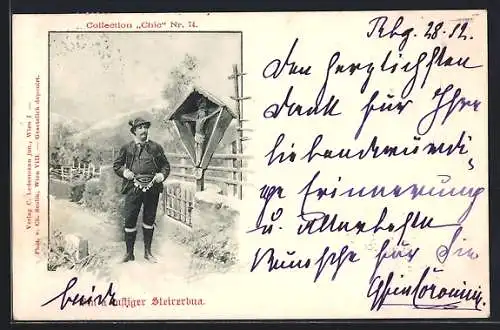 Collection „Chic“ Nr. 74.
Verlag C. Ledermann jun., Wien I —
Phot. v. Ch. Scolik, Wien VIII. — Gesetzlich deponirt.
a lustiger Steirerbua.
Rbg. 28.12.
Den herzlichsten
Dank für Ihre
liebenswürdi-
ge Erinnerung
u. Allerbeste
Wünsche für Sie
beide